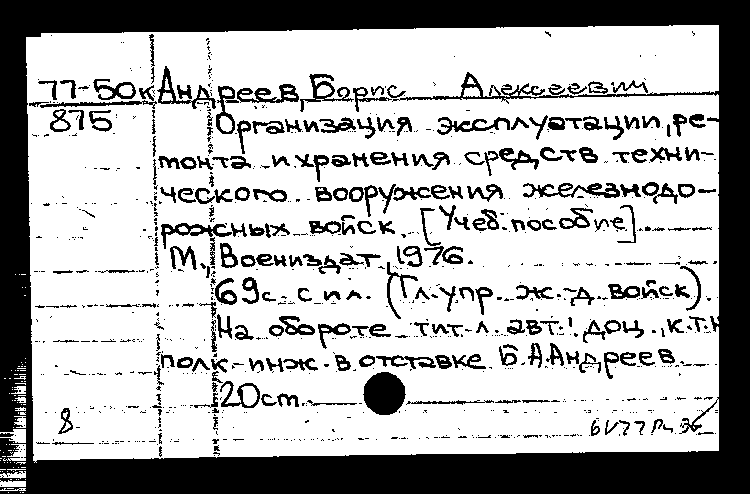 77-50к Андреев, Борис Алексеевич
875 Организация эксплуатации, ре-
монта и хранения средств техни-
ческого вооружения железнодо-
рожных войск. [Учеб. пособие].
М., Воениздат, 1976.
69 с. с ил. (Гл. упр. ж.-д. войск).
На обороте тит. л. авт.: доц., к.т.н
полк.-инж. в отставке Б.А. Андреев.
20 см.
8